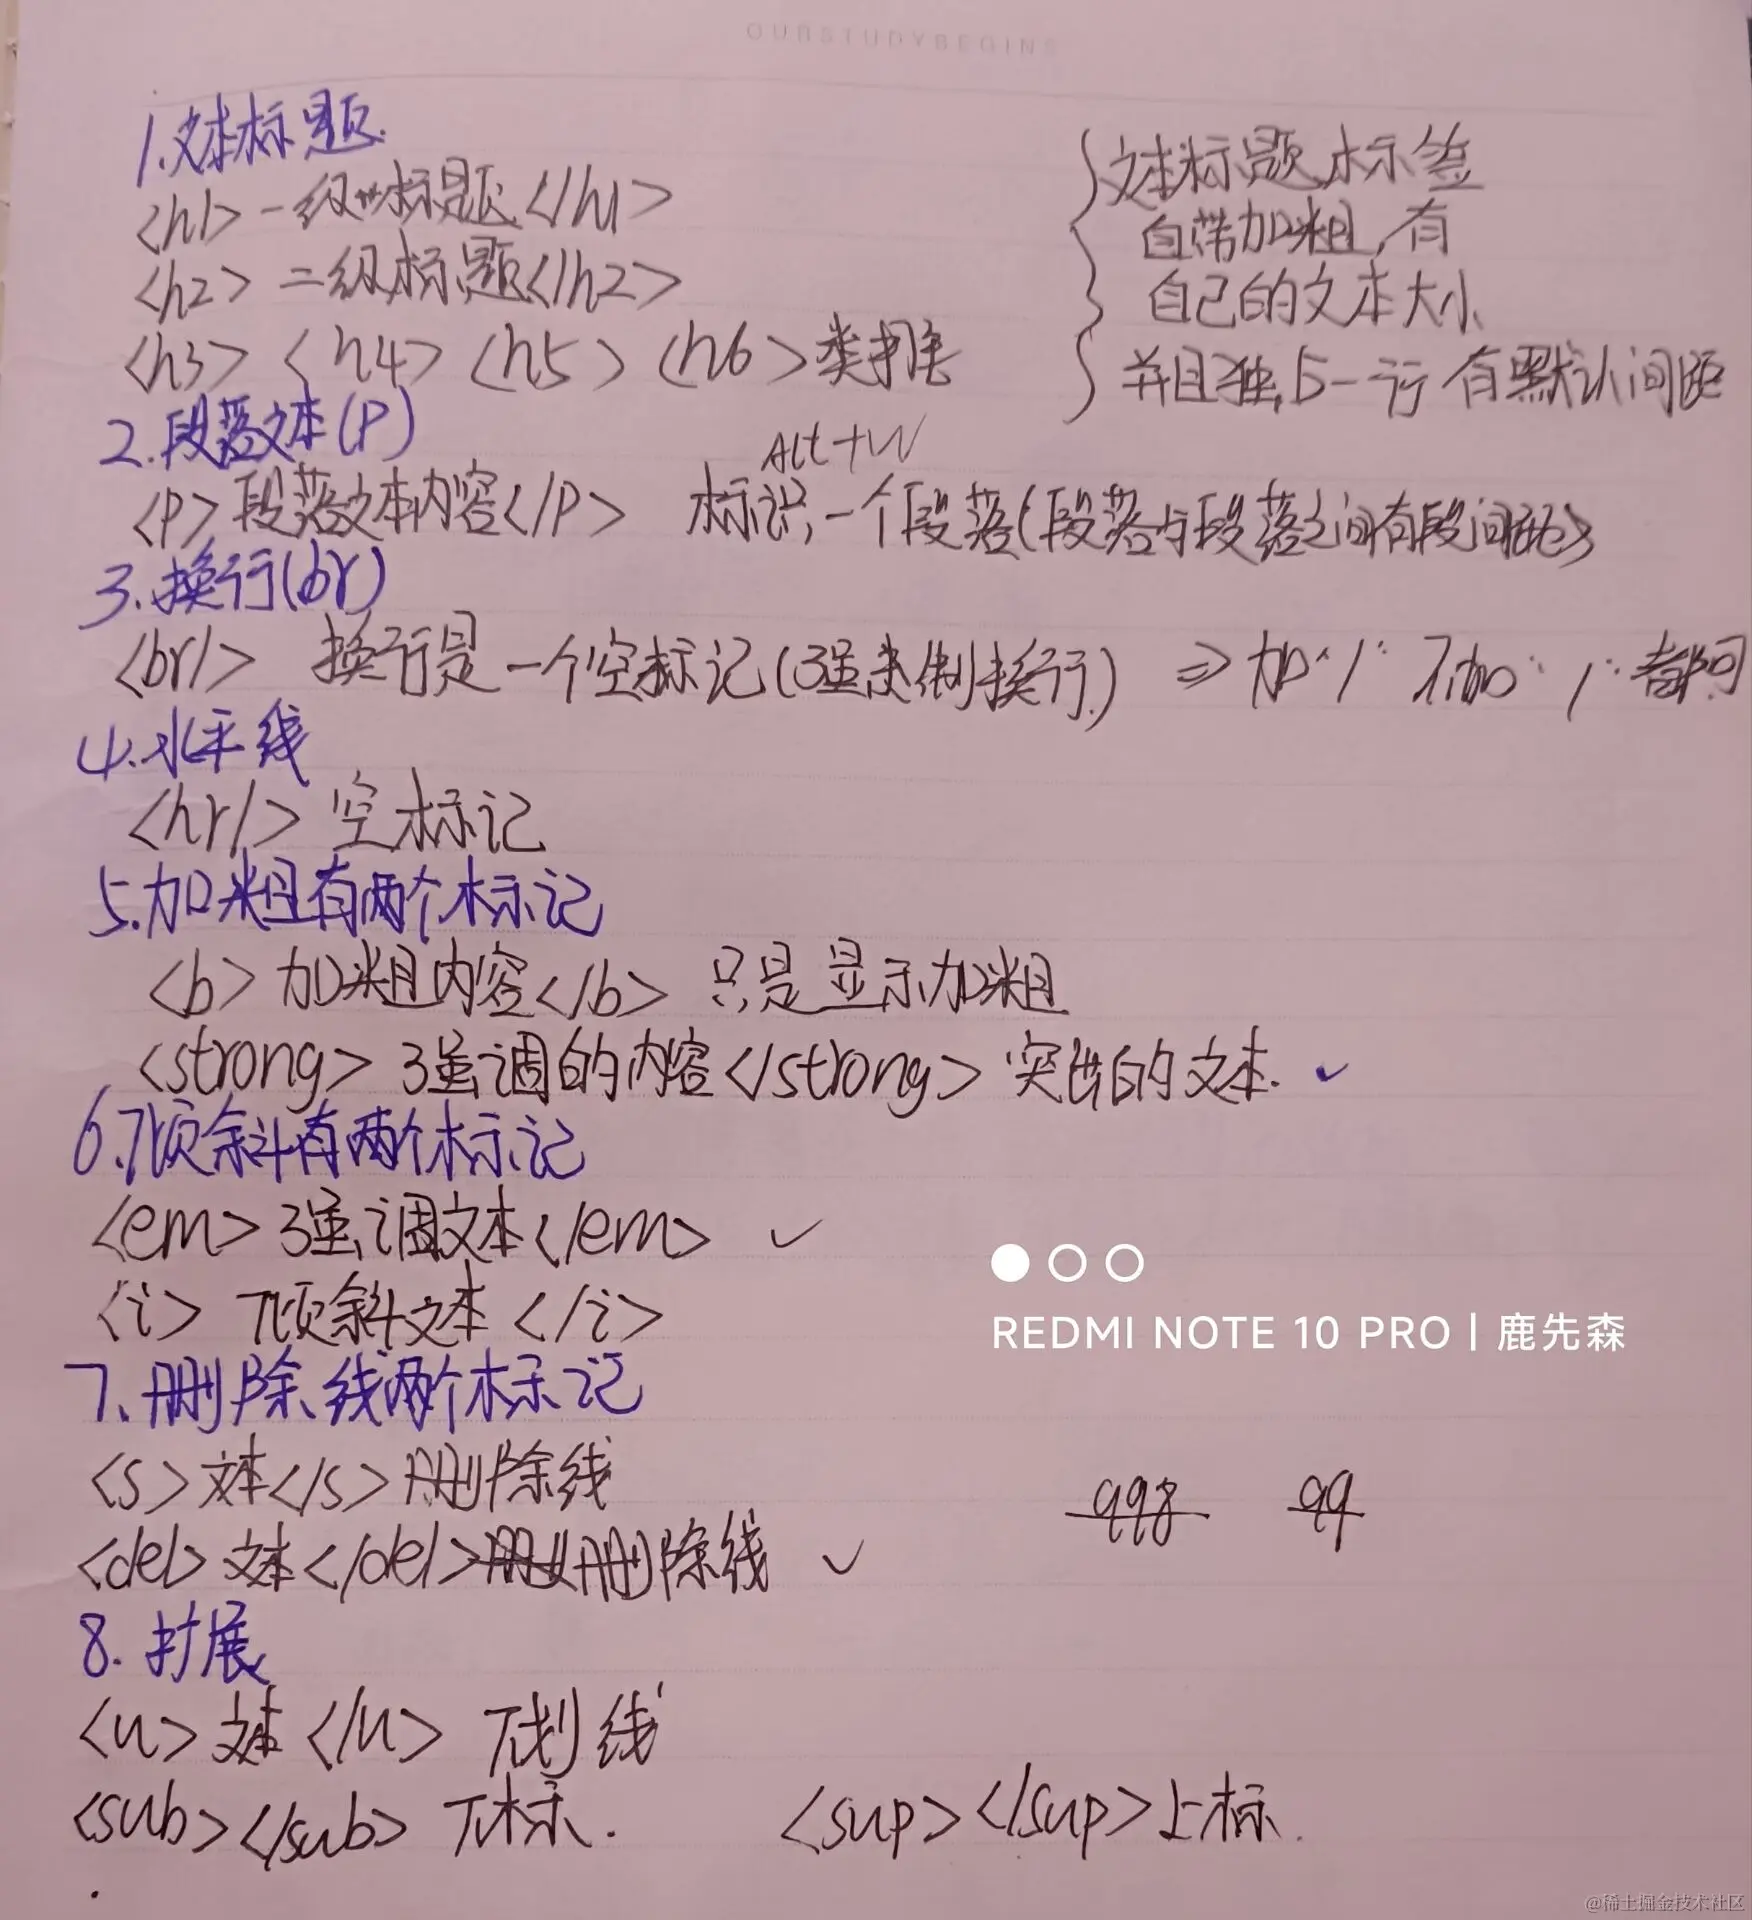 OURSTUDYBEGINS
1.文本标题.
<h1>一级标题</h1>
<h2>二级标题</h2>
<h3> <h4> <h5> <h6>类推
文本标题标签
自带加粗,有
自己的文本大小
并且独占一行 有默认间距
2.段落文本(P)
Alt+W
<P>段落文本内容</P> 标识一个段落(段落与段落之间有段间距)
3.换行(br)
<br/> 换行是一个空标记(强制换行) ⇒ 加"/" 不加"/"都可
4.水平线
<hr/> 空标记
5.加粗有两个标记
<b>加粗内容</b> 只是显示加粗
<strong>强调的内容</strong>突出的文本. ✓
6.倾斜有两个标记
<em>强调文本</em> ✓
<i>倾斜文本</i>
7.删除线两个标记
<s>文本</s>删除线 998 99
<del>文本</del>删除线 ✓
8.扩展
<u>文本</u> 下划线
<sub></sub> 下标. <sup></sup>上标.
REDMI NOTE 10 PRO | 鹿先森
@稀土掘金技术社区